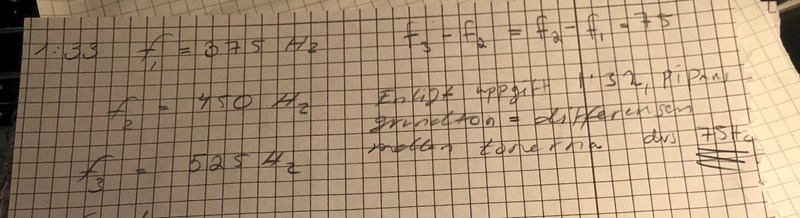 1:33 f₁ = 375 Hz f₃ - f₂ = f₂ - f₁ = 75
f₂ = 450 Hz Enligt uppgift 1:32, pipans
grundton = differensen
f₃ = 525 Hz mellan tonerna dvs 75Hz